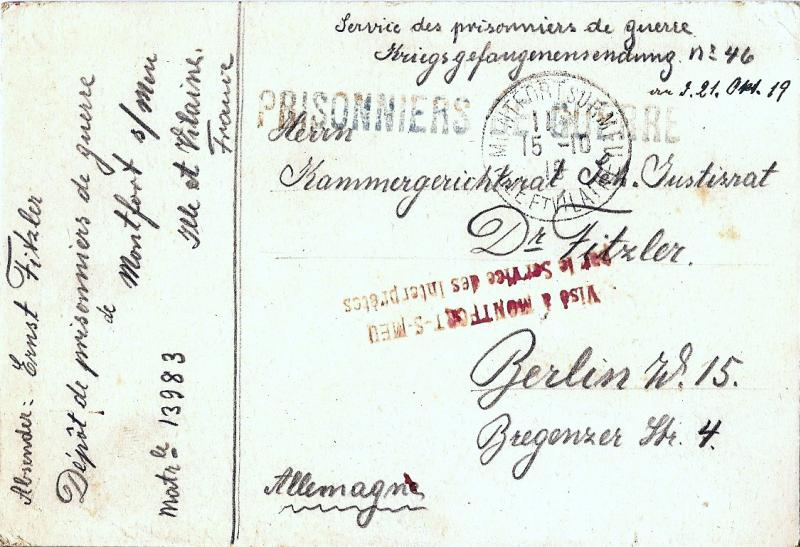 Service des prisonniers de guerre
Kriegsgefangenensendung. No 46
21. Okt. 19
PRISONNIERS DE GUERRE
MONTFORT SUR MEU
15 -10
19
ILLE ET VILAINE
Herrn
Kammergerichtsrat Geh. Justizrat
Dr Fitzler.
Visé à MONTFORT-S-MEU
par le Service des Interprètes
Berlin W. 15.
Bregenzer Str. 4.
Allemagne
Absender: Ernst Fitzler
Dépôt de prisonniers de guerre
de Montfort s/Meu
Ille et Vilaine.
France
Matrle 13983